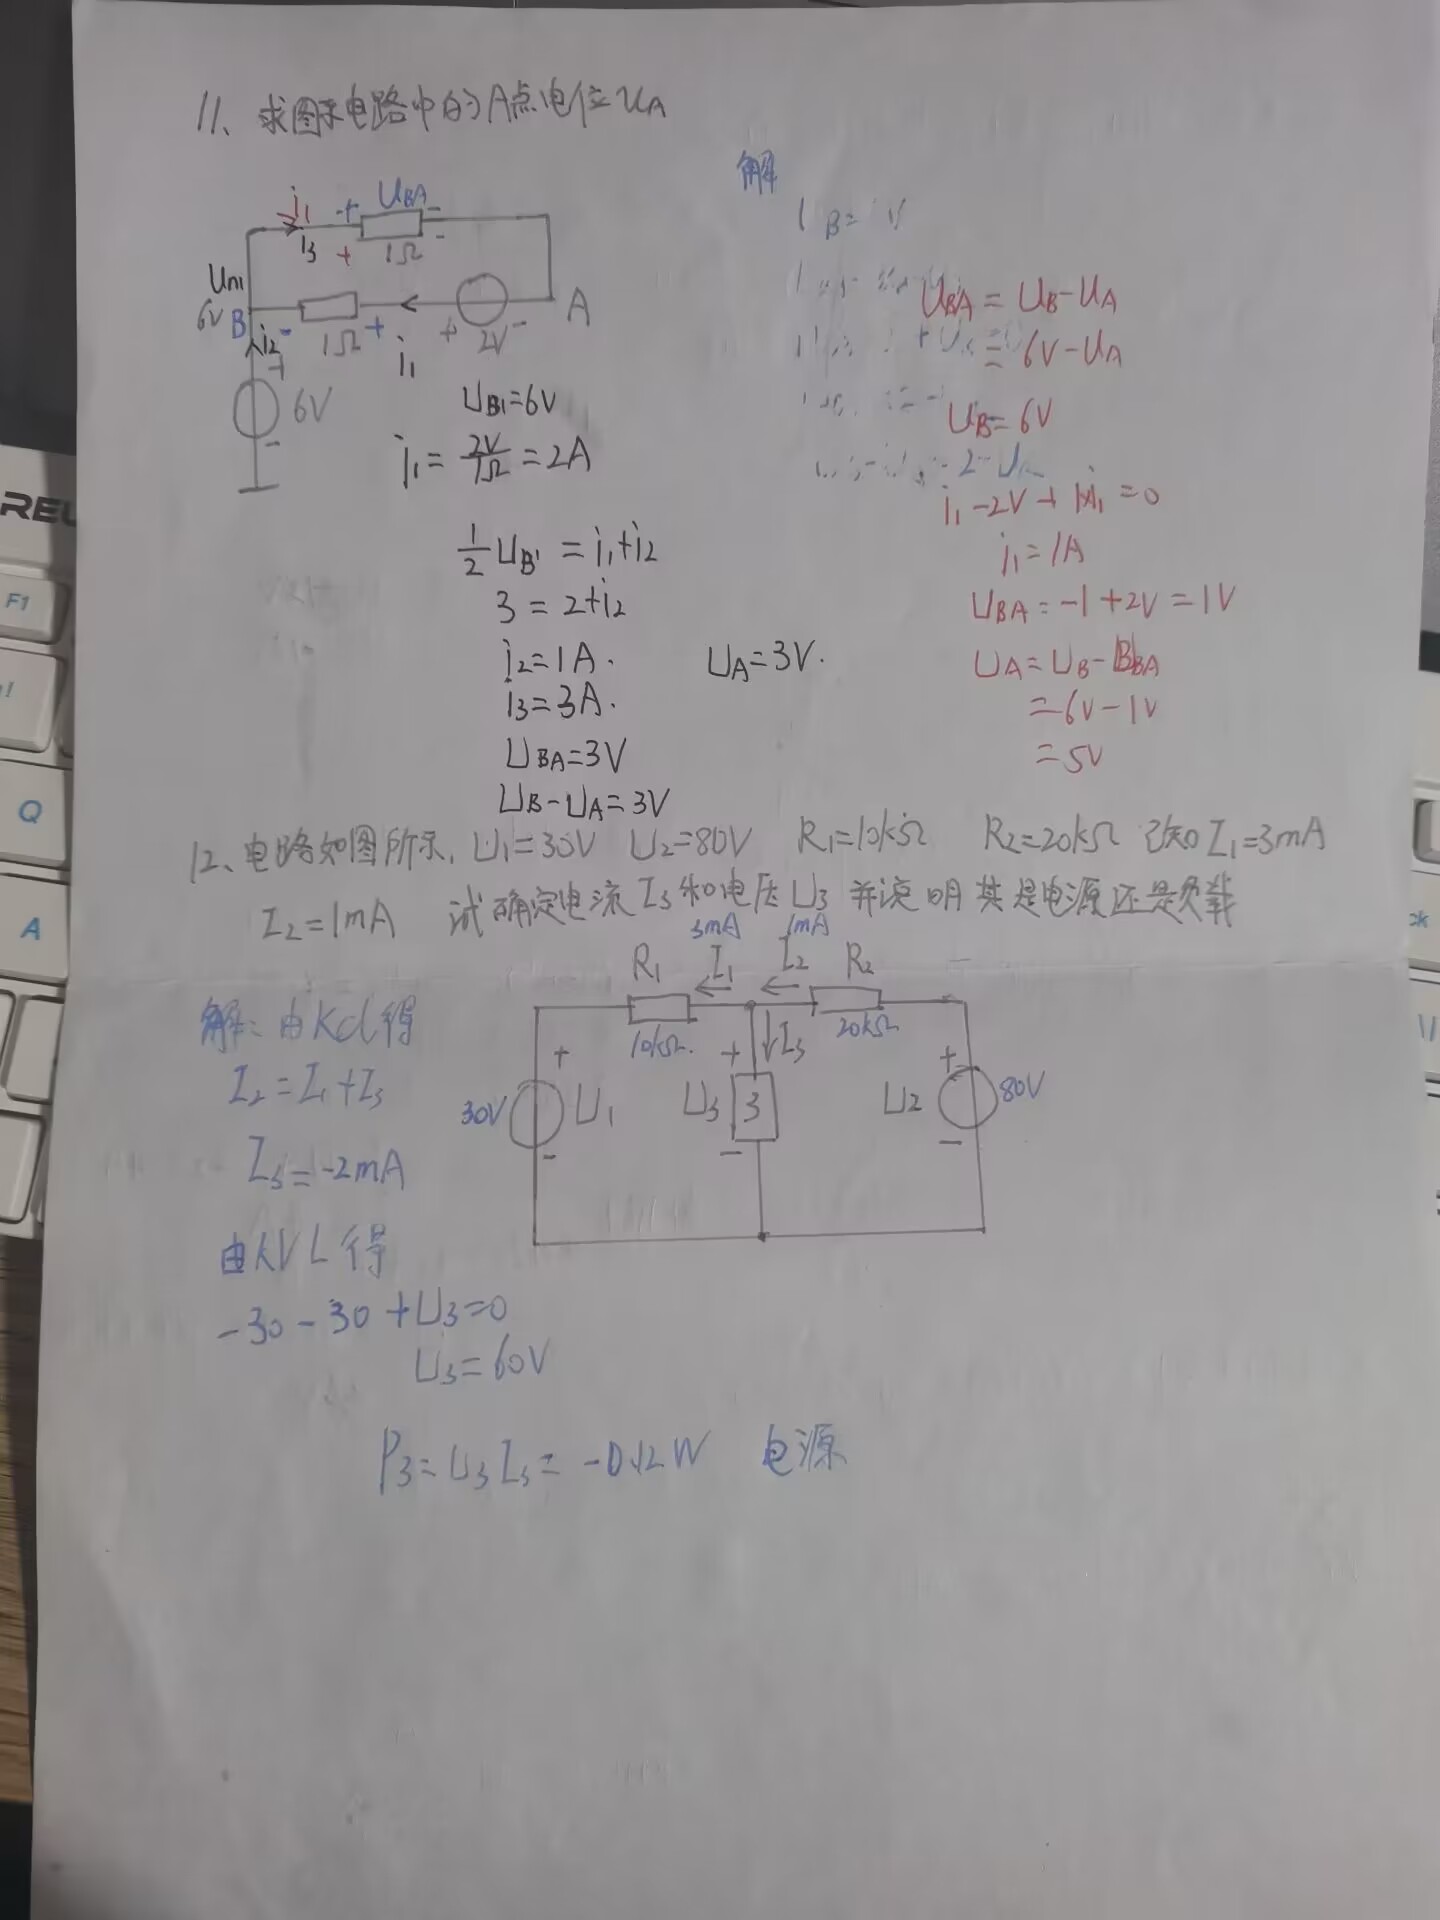 11、求图示电路中的A点电位UA
解
i1
+ UBA -
i3 + 1Ω -
Un1
6V B - 1Ω + + 2V - A
i2
i1
+
6V
-
UB1=6V
i1=2V/1Ω=2A
1/2 UB1=i1+i2
3=2+i2
i2=1A.
i3=3A.
UBA=3V
UB-UA=3V
UA=3V.
UBA=UB-UA
=6V-UA
UB=6V
i1-2V+1×i1=0
i1=1A
UBA=-1+2V=1V
UA=UB-BBA
=6V-1V
=5V
12、电路如图所示,U1=30V U2=80V R1=10kΩ R2=20kΩ 已知I1=3mA
I2=1mA 试确定电流I3和电压U3并说明其是电源还是负载
3mA 1mA
R1 I1 I2 R2
10kΩ. I3 20kΩ
+ + +
30V U1 U3 3 U2 80V
- - -
解:由Kcl得
I2=I1+I3
I3=-2mA
由KVL得
-30-30+U3=0
U3=60V
P3=U3I3=-0.12W 电源
REL
F1
Q
A